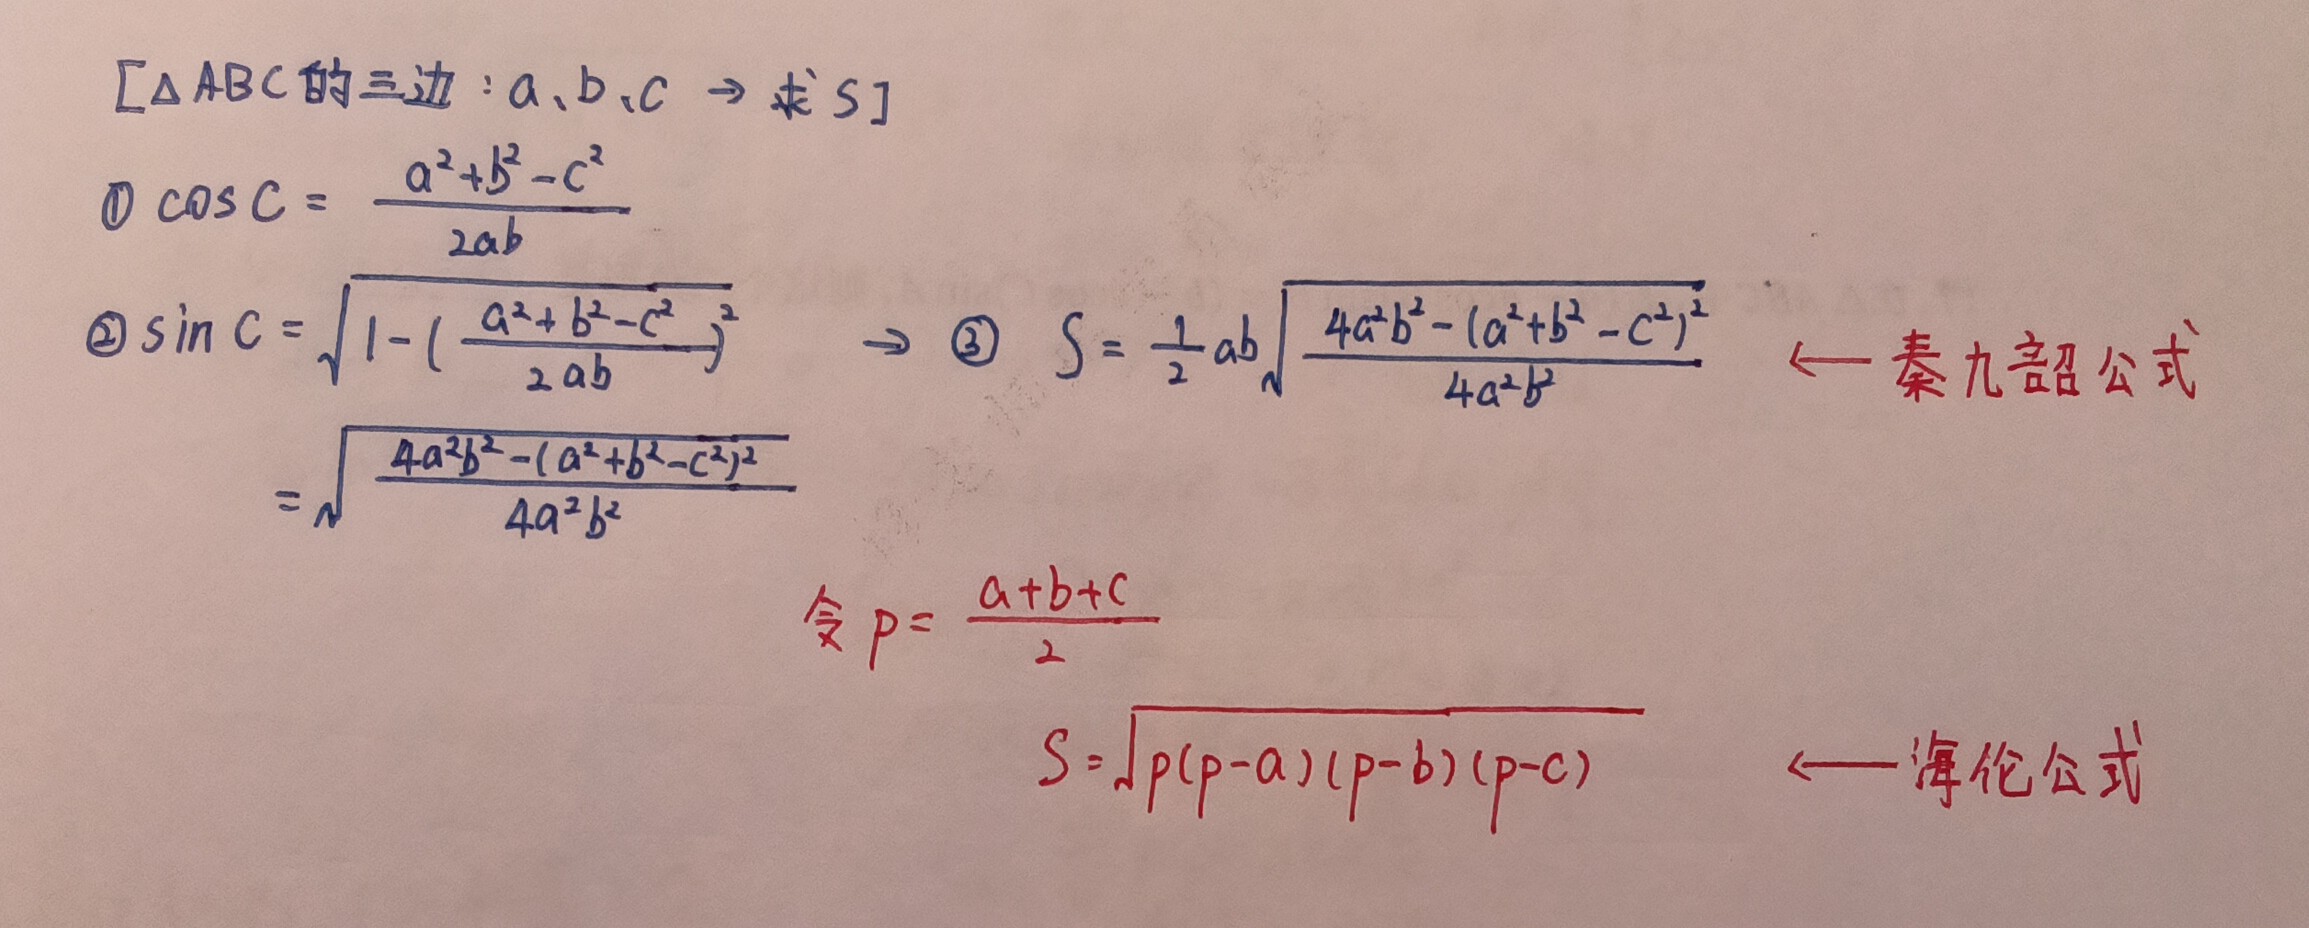 [△ABC的三边:a、b、c → 求S]
① cosC = \frac{a²+b²-c²}{2ab}
② sin C = \sqrt{1-(\frac{a²+b²-c²}{2ab})²} → ③ S = \frac{1}{2}ab\sqrt{\frac{4a²b²-(a²+b²-c²)²}{4a²b²}} ← 秦九韶公式
= \sqrt{\frac{4a²b²-(a²+b²-c²)²}{4a²b²}}
令 p = \frac{a+b+c}{2}
S = \sqrt{p(p-a)(p-b)(p-c)} ← 海伦公式